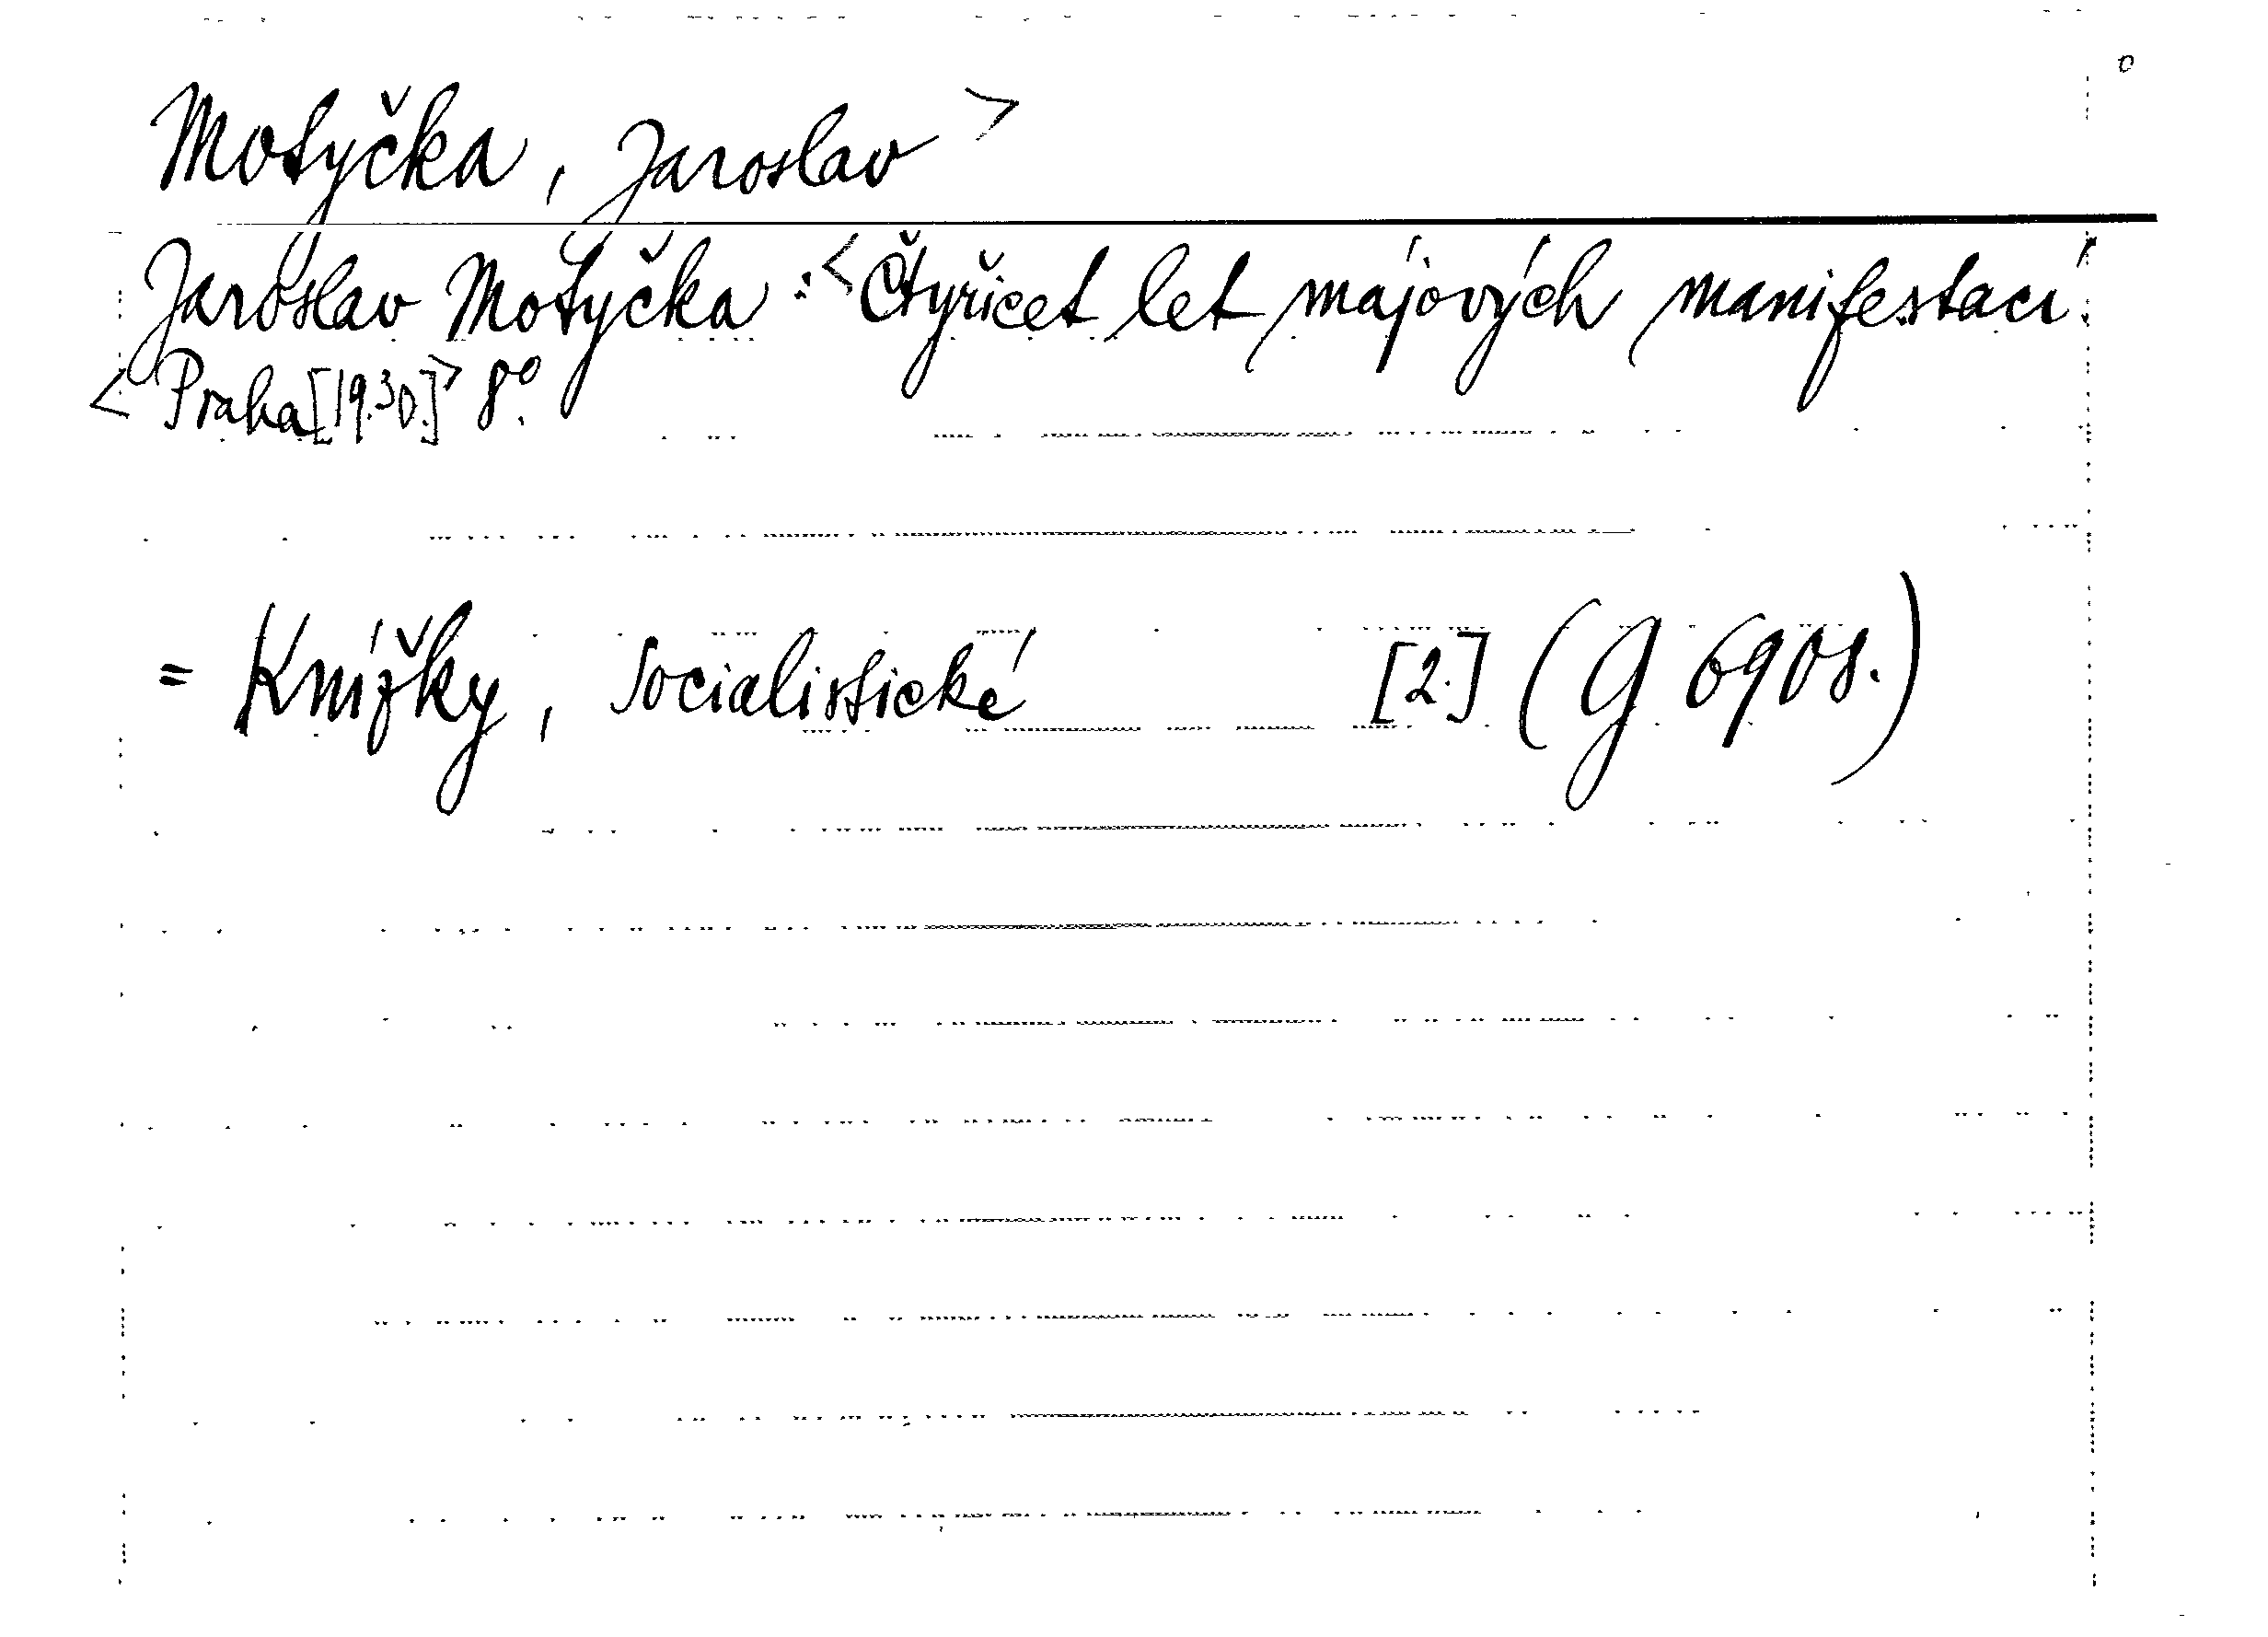 Motyčka, Jaroslav >
Jaroslav Motyčka: < Čtyřicet let májových manifestací.
< Praha [19.30.] > 8°.
= Knížky, Socialistické [2.] (G 6908.)